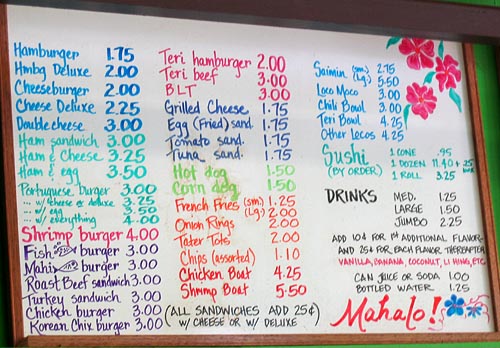 Hamburger 1.75
Hmbg Deluxe 2.00
Cheeseburger 2.00
Cheese Deluxe 2.25
Doublecheese 3.00
Ham sandwich 3.00
Ham & Cheese 3.25
Ham & egg 3.50
Portuguese burger 3.00
... w/ cheese or deluxe 3.25
... w/ egg 3.50
... w/ everything 4.00
Shrimp burger 4.00
Fish burger 3.00
Mahi burger 3.00
Roast Beef sandwich 3.00
Turkey sandwich 3.00
Chicken burger 3.00
Korean Chix burger 3.00
Teri hamburger 2.00
Teri beef 3.00
BLT 3.00
Grilled Cheese 1.75
Egg (Fried) sand. 1.75
Tomato sand. 1.75
Tuna sand. 1.75
Hot dog 1.50
Corn dog 1.50
French Fries (sm.) 1.25
(Lg.) 2.00
Onion Rings 2.00
Tater Tots 2.00
Chips (assorted) 1.10
Chicken Boat 4.25
Shrimp Boat 5.50
(ALL SANDWICHES ADD 25¢)
W/ CHEESE OR W/ DELUXE
Saimin (sm.) 2.75
(Lg.) 5.50
Loco Moco 3.00
Chili Bowl 3.00
Teri Bowl 4.25
Other Locos 4.25
Sushi 1 CONE .95
(BY ORDER) 1 DOZEN 11.40 + .25 BOX
1 ROLL 3.25
DRINKS MED. 1.25
LARGE 1.50
JUMBO 2.25
ADD 10¢ FOR 1st ADDITIONAL FLAVOR
AND 25¢ FOR EACH FLAVOR THEREAFTER
VANILLA, BANANA, COCONUT, LI HING, ETC
CAN JUICE OR SODA 1.00
BOTTLED WATER 1.25
Mahalo!